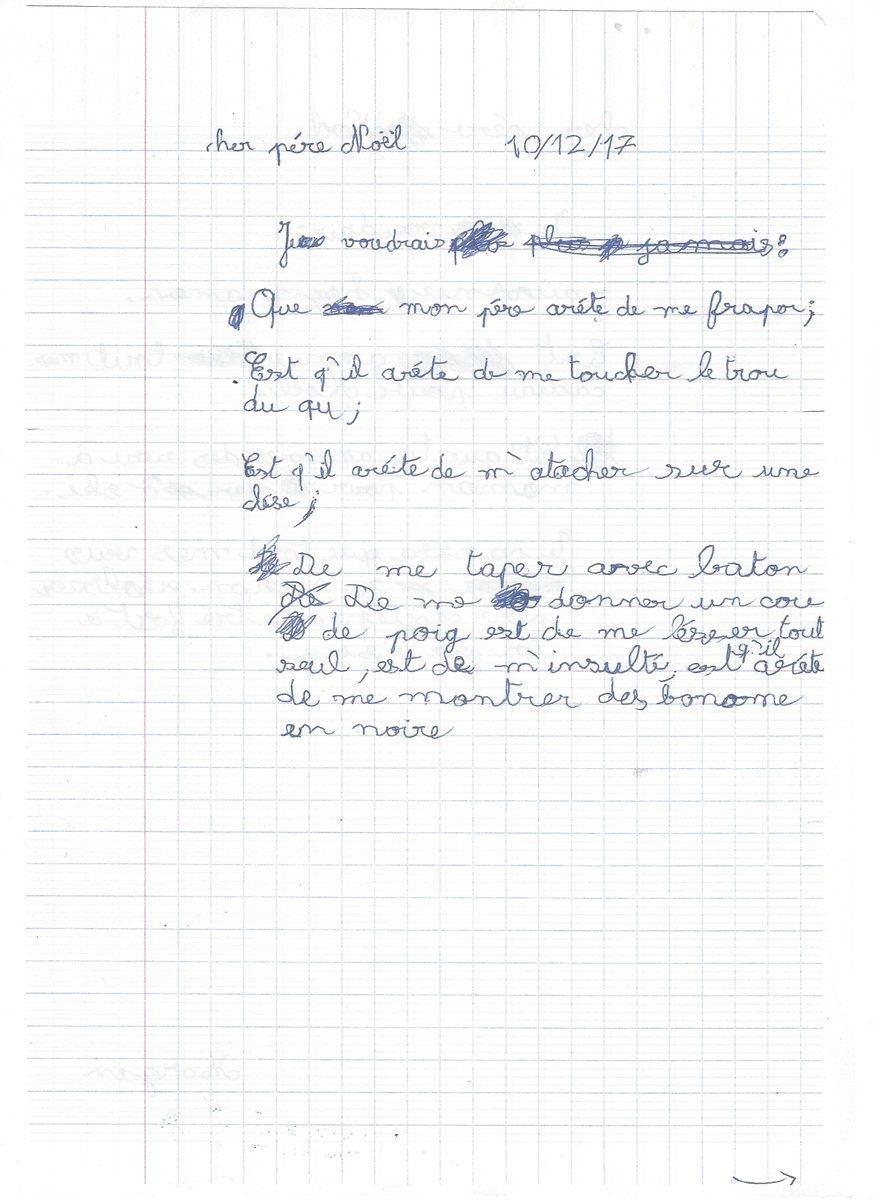 cher pére Noël 10/12/17
Je voudrais plus jamais :
Que mon pére aréte de me fraper ;
Est q'il aréte de me toucher le trou
du qu ;
Est q'il aréte de m'atacher sur une
chése ;
De me taper avec baton
De De me donner un cou
de poig est de me léser tout
seul, est de m'insulté, est q'il aréte
de me montrer des bonome
en noire